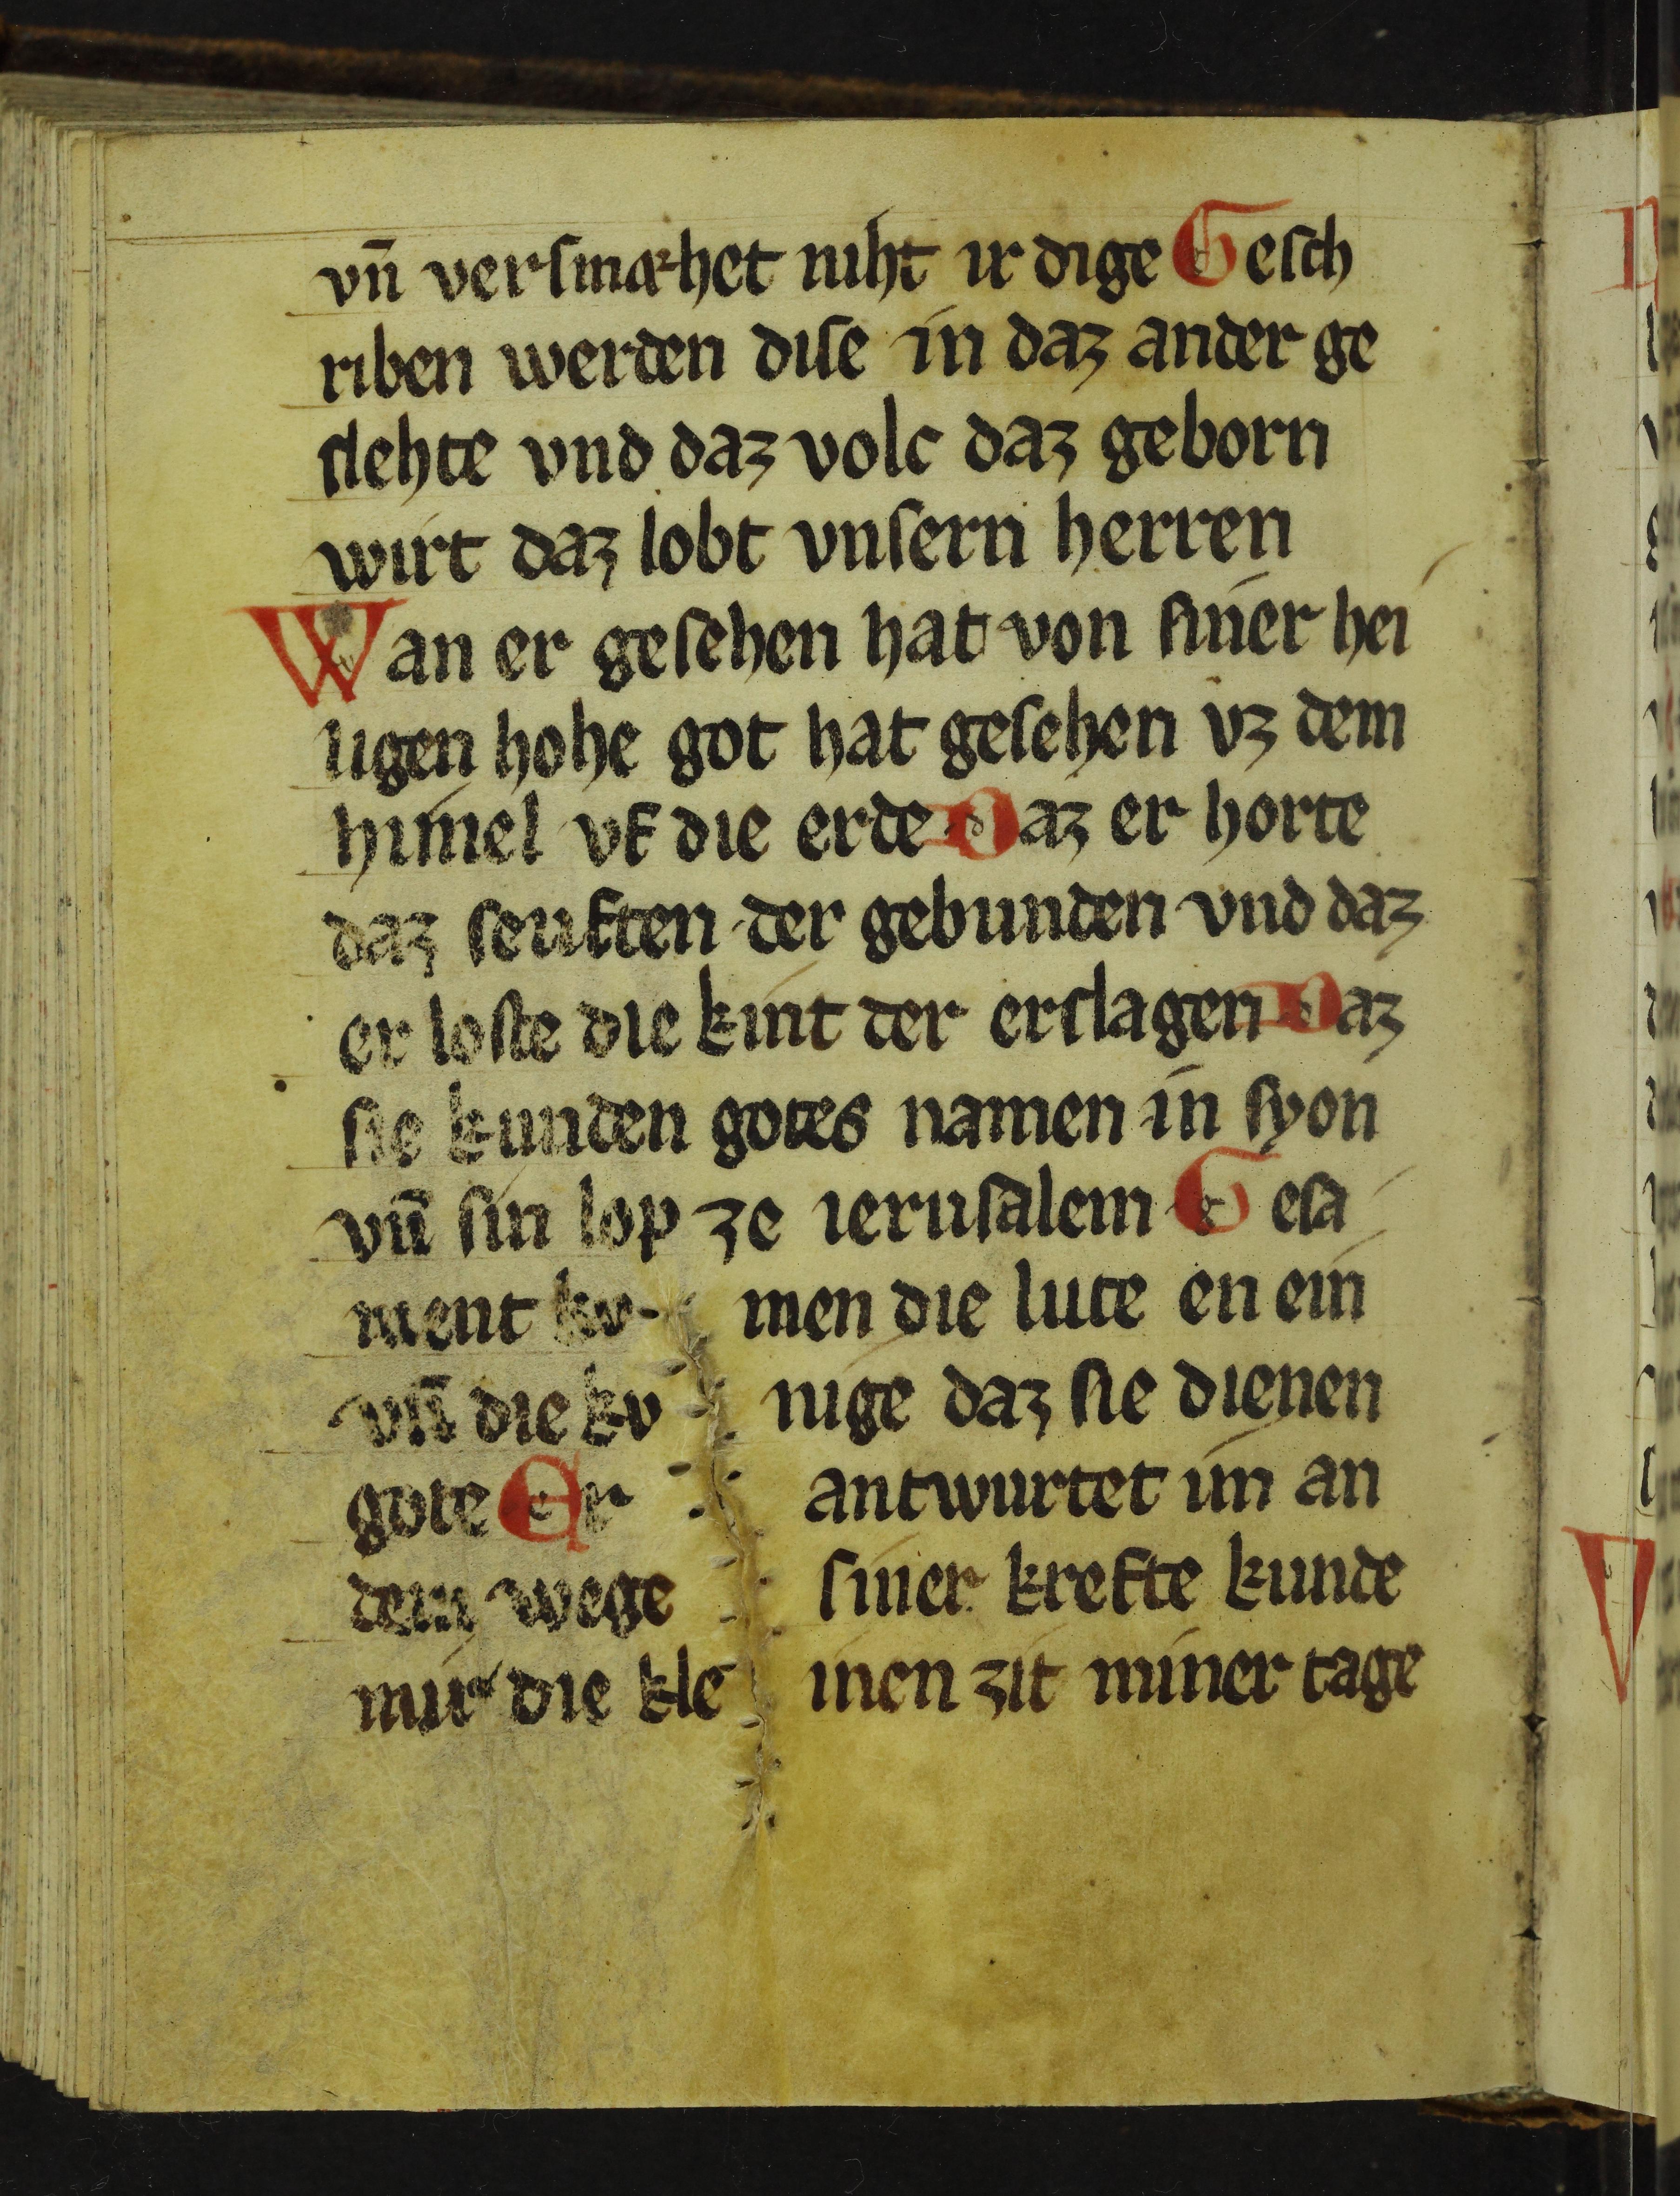 vn̄ versmæhet niht ir dige Gesch
riben werden dise in daz ander ge
slehte vnd daz volc daz geborn
wirt daz lobt vnsern herren
Wan er gesehen hat von siner hei
ligen hohe got hat gesehen vz dem
himel vf die erde Daz er horte
daz seuften der gebunden vnd daz
er loste die kint der erslagen Daz
sie kunden gotes namen in syon
vn̄ sin lop ze ierusalem Gesa
ment kv- men die lute en ein
vn̄ die kv nige daz sie dienen
gote Er antwurtet im an
dem wege siner krefte kunde
mir die kle inen zit miner tage